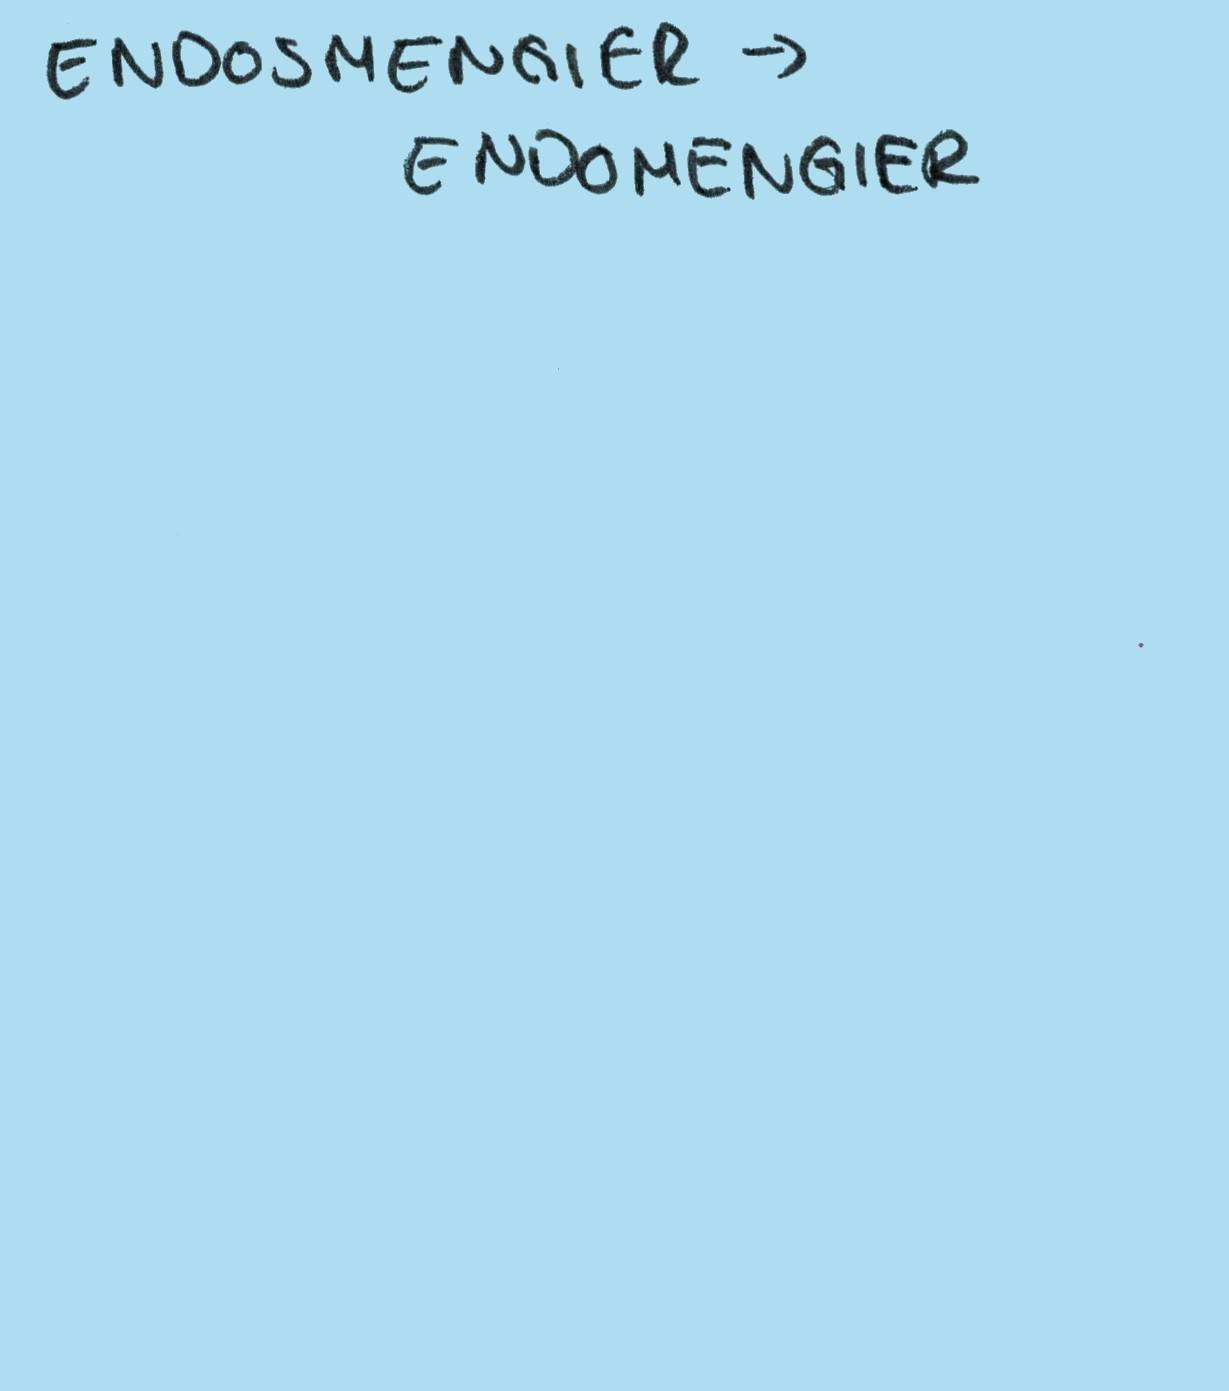 ENDOSMENGIER →
ENDOMENGIER